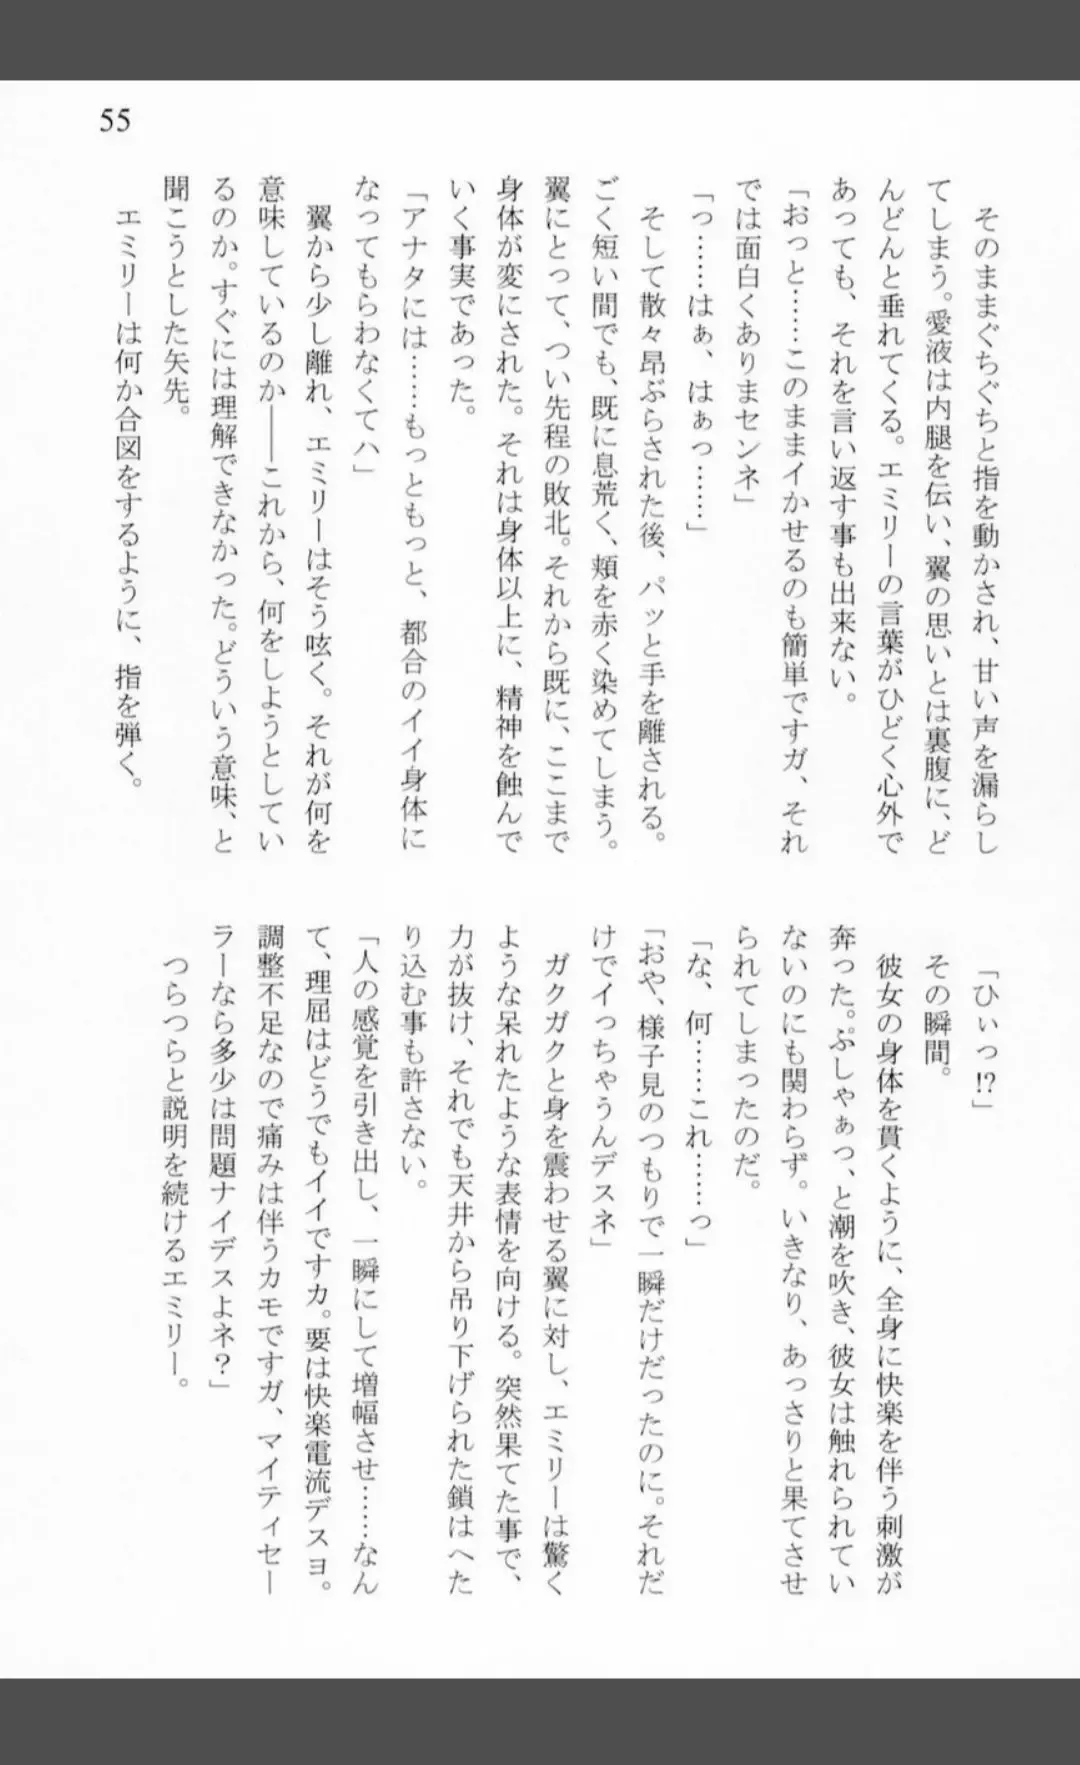 55
そのままぐちぐちと指を動かされ、甘い声を漏らし
てしまう。愛液は内腿を伝い、翼の思いとは裏腹に、ど
んどんと垂れてくる。エミリーの言葉がひどく心外で
あっても、それを言い返す事も出来ない。
「おっと……このままイかせるのも簡単ですガ、それ
では面白くありまセンネ」
「っ……はぁ、はぁっ……」
そして散々昂ぶらされた後、パッと手を離される。
ごく短い間でも、既に息荒く、頬を赤く染めてしまう。
翼にとって、つい先程の敗北。それから既に、ここまで
身体が変にされた。それは身体以上に、精神を蝕んで
いく事実であった。
「アナタには……もっともっと、都合のイイ身体に
なってもらわなくてハ」
翼から少し離れ、エミリーはそう呟く。それが何を
意味しているのか――これから、何をしようとしてい
るのか。すぐには理解できなかった。どういう意味、と
聞こうとした矢先。
エミリーは何か合図をするように、指を弾く。
「ひぃっ!?」
その瞬間。
彼女の身体を貫くように、全身に快楽を伴う刺激が
奔った。ぷしゃぁっ、と潮を吹き、彼女は触れられてい
ないのにも関わらず。いきなり、あっさりと果てさせ
られてしまったのだ。
「な、何……これ……っ」
「おや、様子見のつもりで一瞬だけだったのに。それだ
けでイっちゃうんデスネ」
ガクガクと身を震わせる翼に対し、エミリーは驚く
ような呆れたような表情を向ける。突然果てた事で、
力が抜け、それでも天井から吊り下げられた鎖はへた
り込む事も許さない。
「人の感覚を引き出し、一瞬にして増幅させ……なん
て、理屈はどうでもイイですカ。要は快楽電流デスヨ。
調整不足なので痛みは伴うカモですガ、マイティセー
ラーなら多少は問題ナイデスよネ？」
つらつらと説明を続けるエミリー。